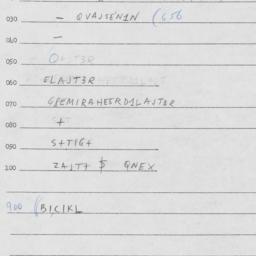 030 - QVAJSEN1N (656
040 -
050
060 ELAJT3R
070 GPEMIRAHEERD1LAJT3R
080 +
090 S+TIG+
100 ZAJT+ $ QNEX
900 (BICIKL